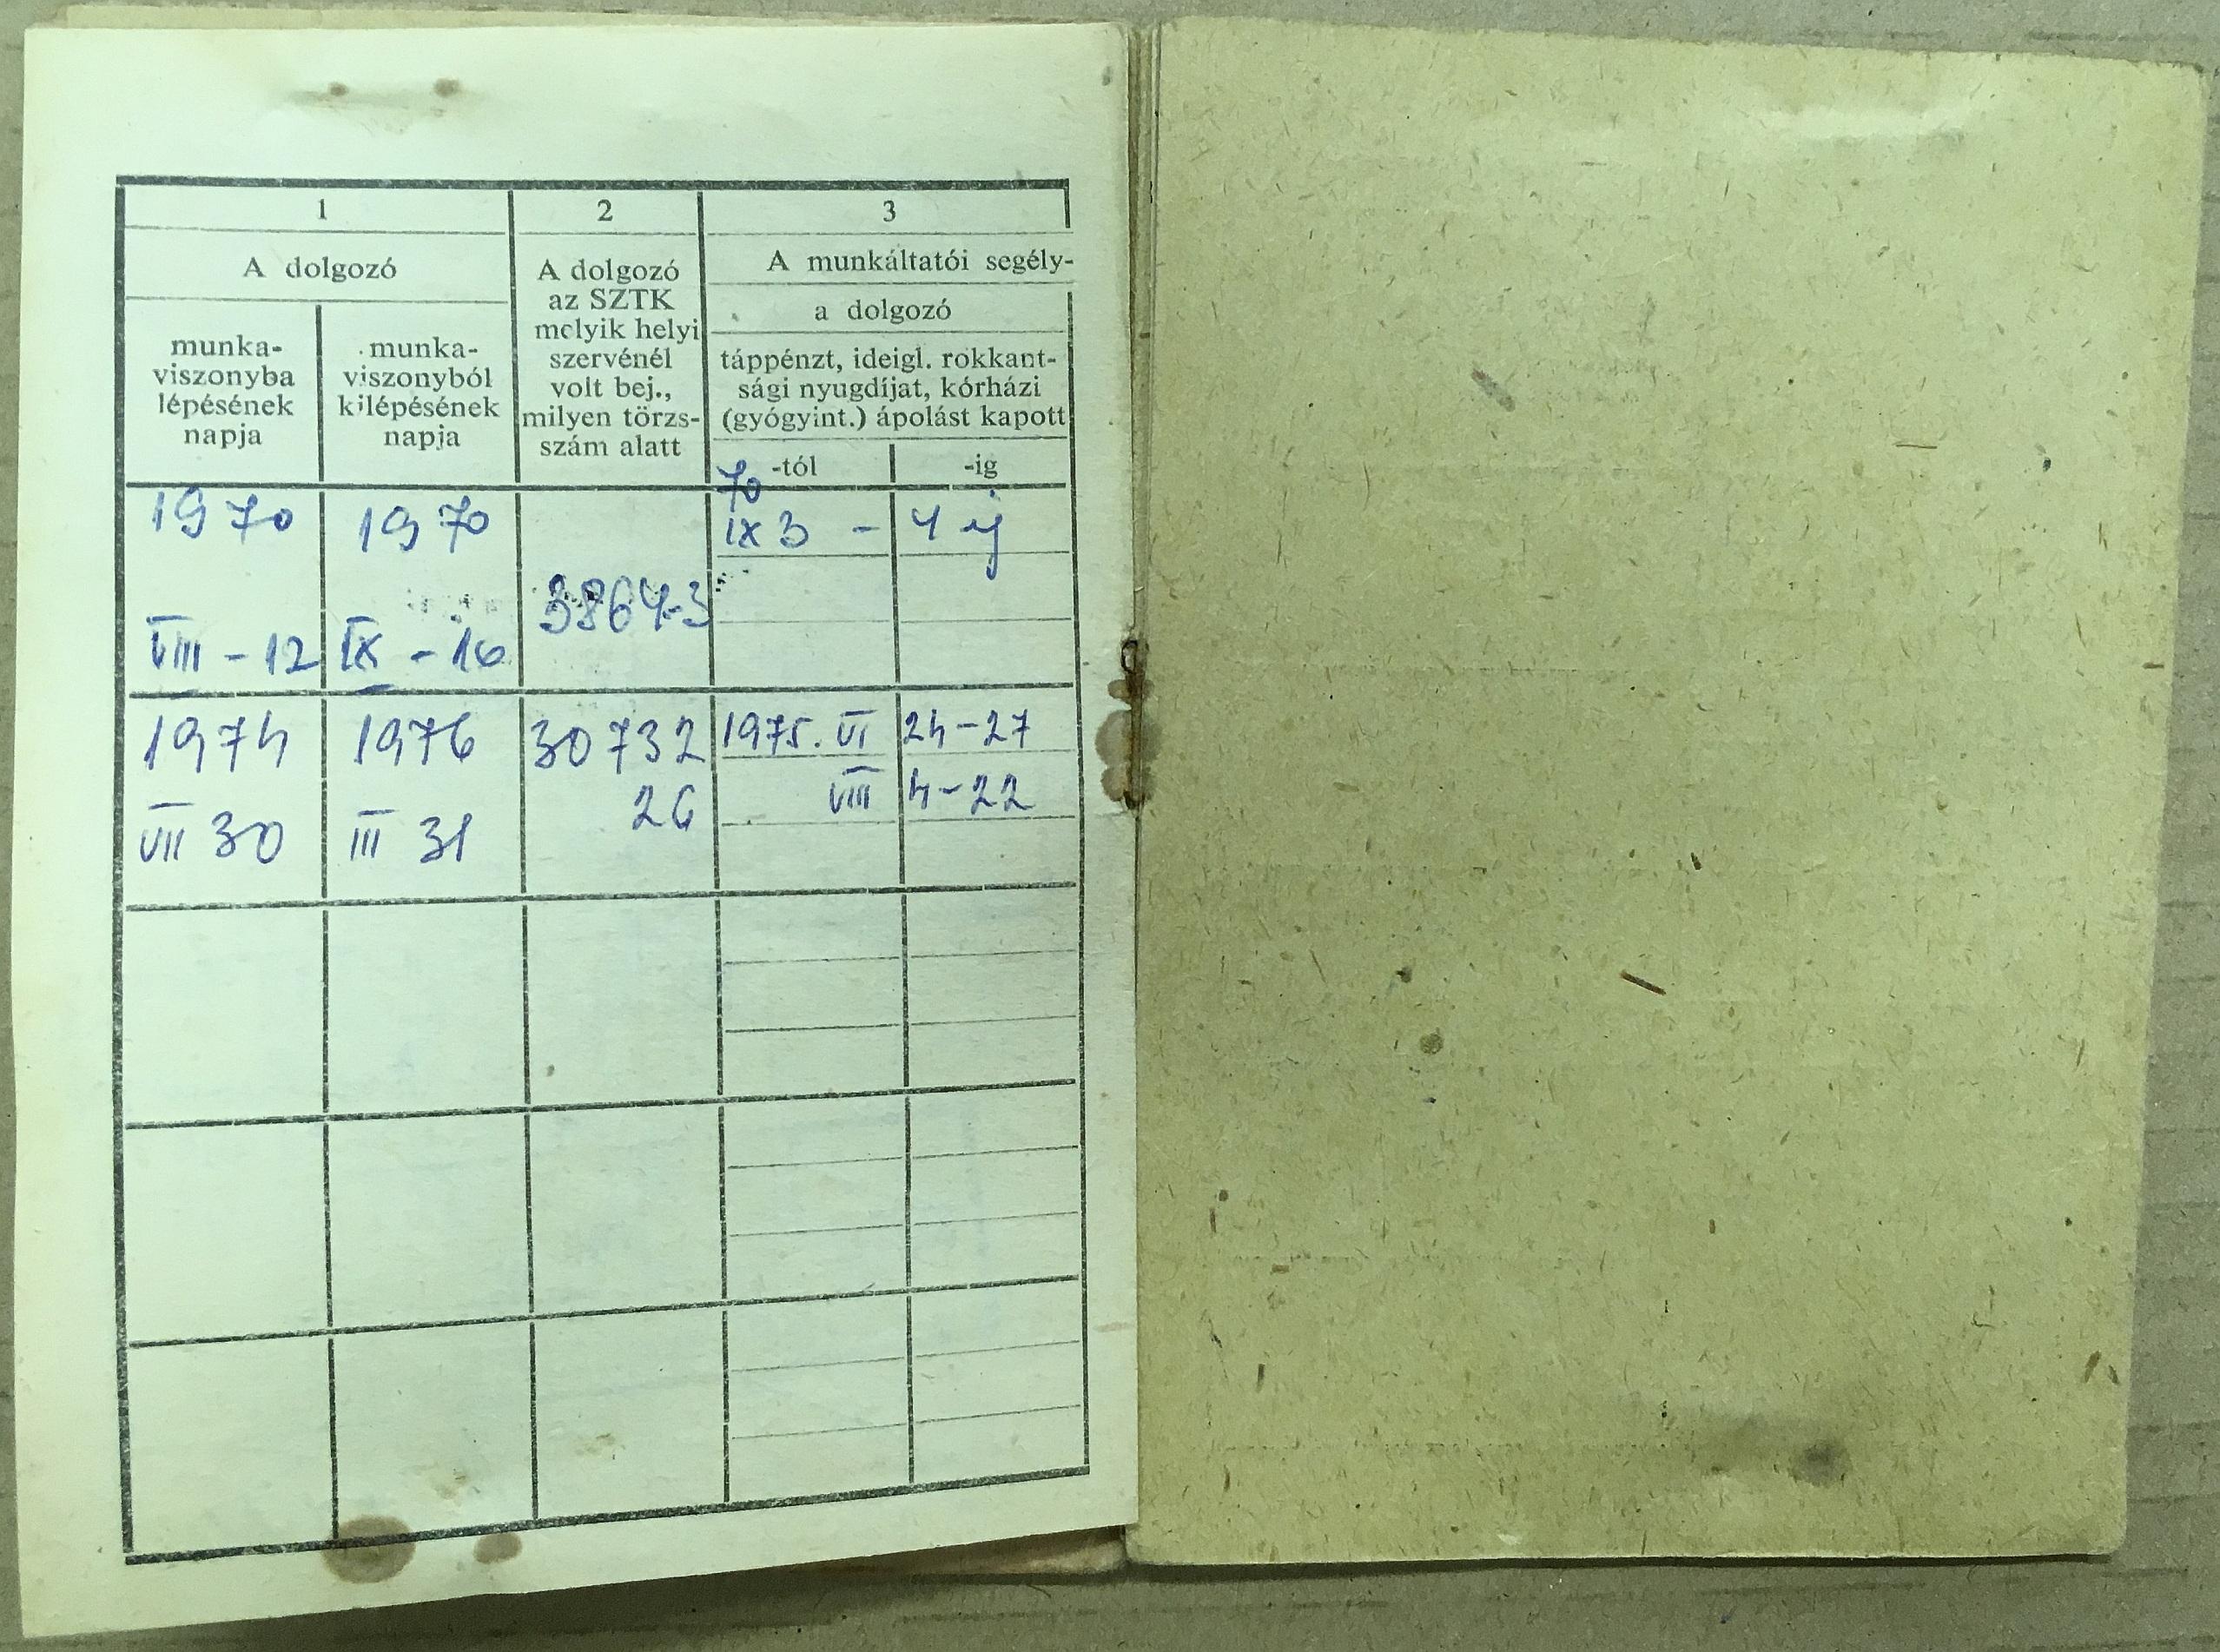 1
2
3
A dolgozó
munka-
viszonyba
lépésének
napja
munka-
viszonyból
kilépésének
napja
A dolgozó
az SZTK
melyik helyi
szervénél
volt bej.,
milyen törzs-
szám alatt
A munkáltatói segély-
a dolgozó
táppénzt, ideigl. rokkant-
sági nyugdíjat, kórházi
(gyógyint.) ápolást kapott
-tól
-ig
1970
VIII - 12
1970
IX - 16
3864-3
70
IX 3 -
4 ig
1974
VII 30
1976
III 31
30732
26
1975. VI
24-27
VIII
4-22